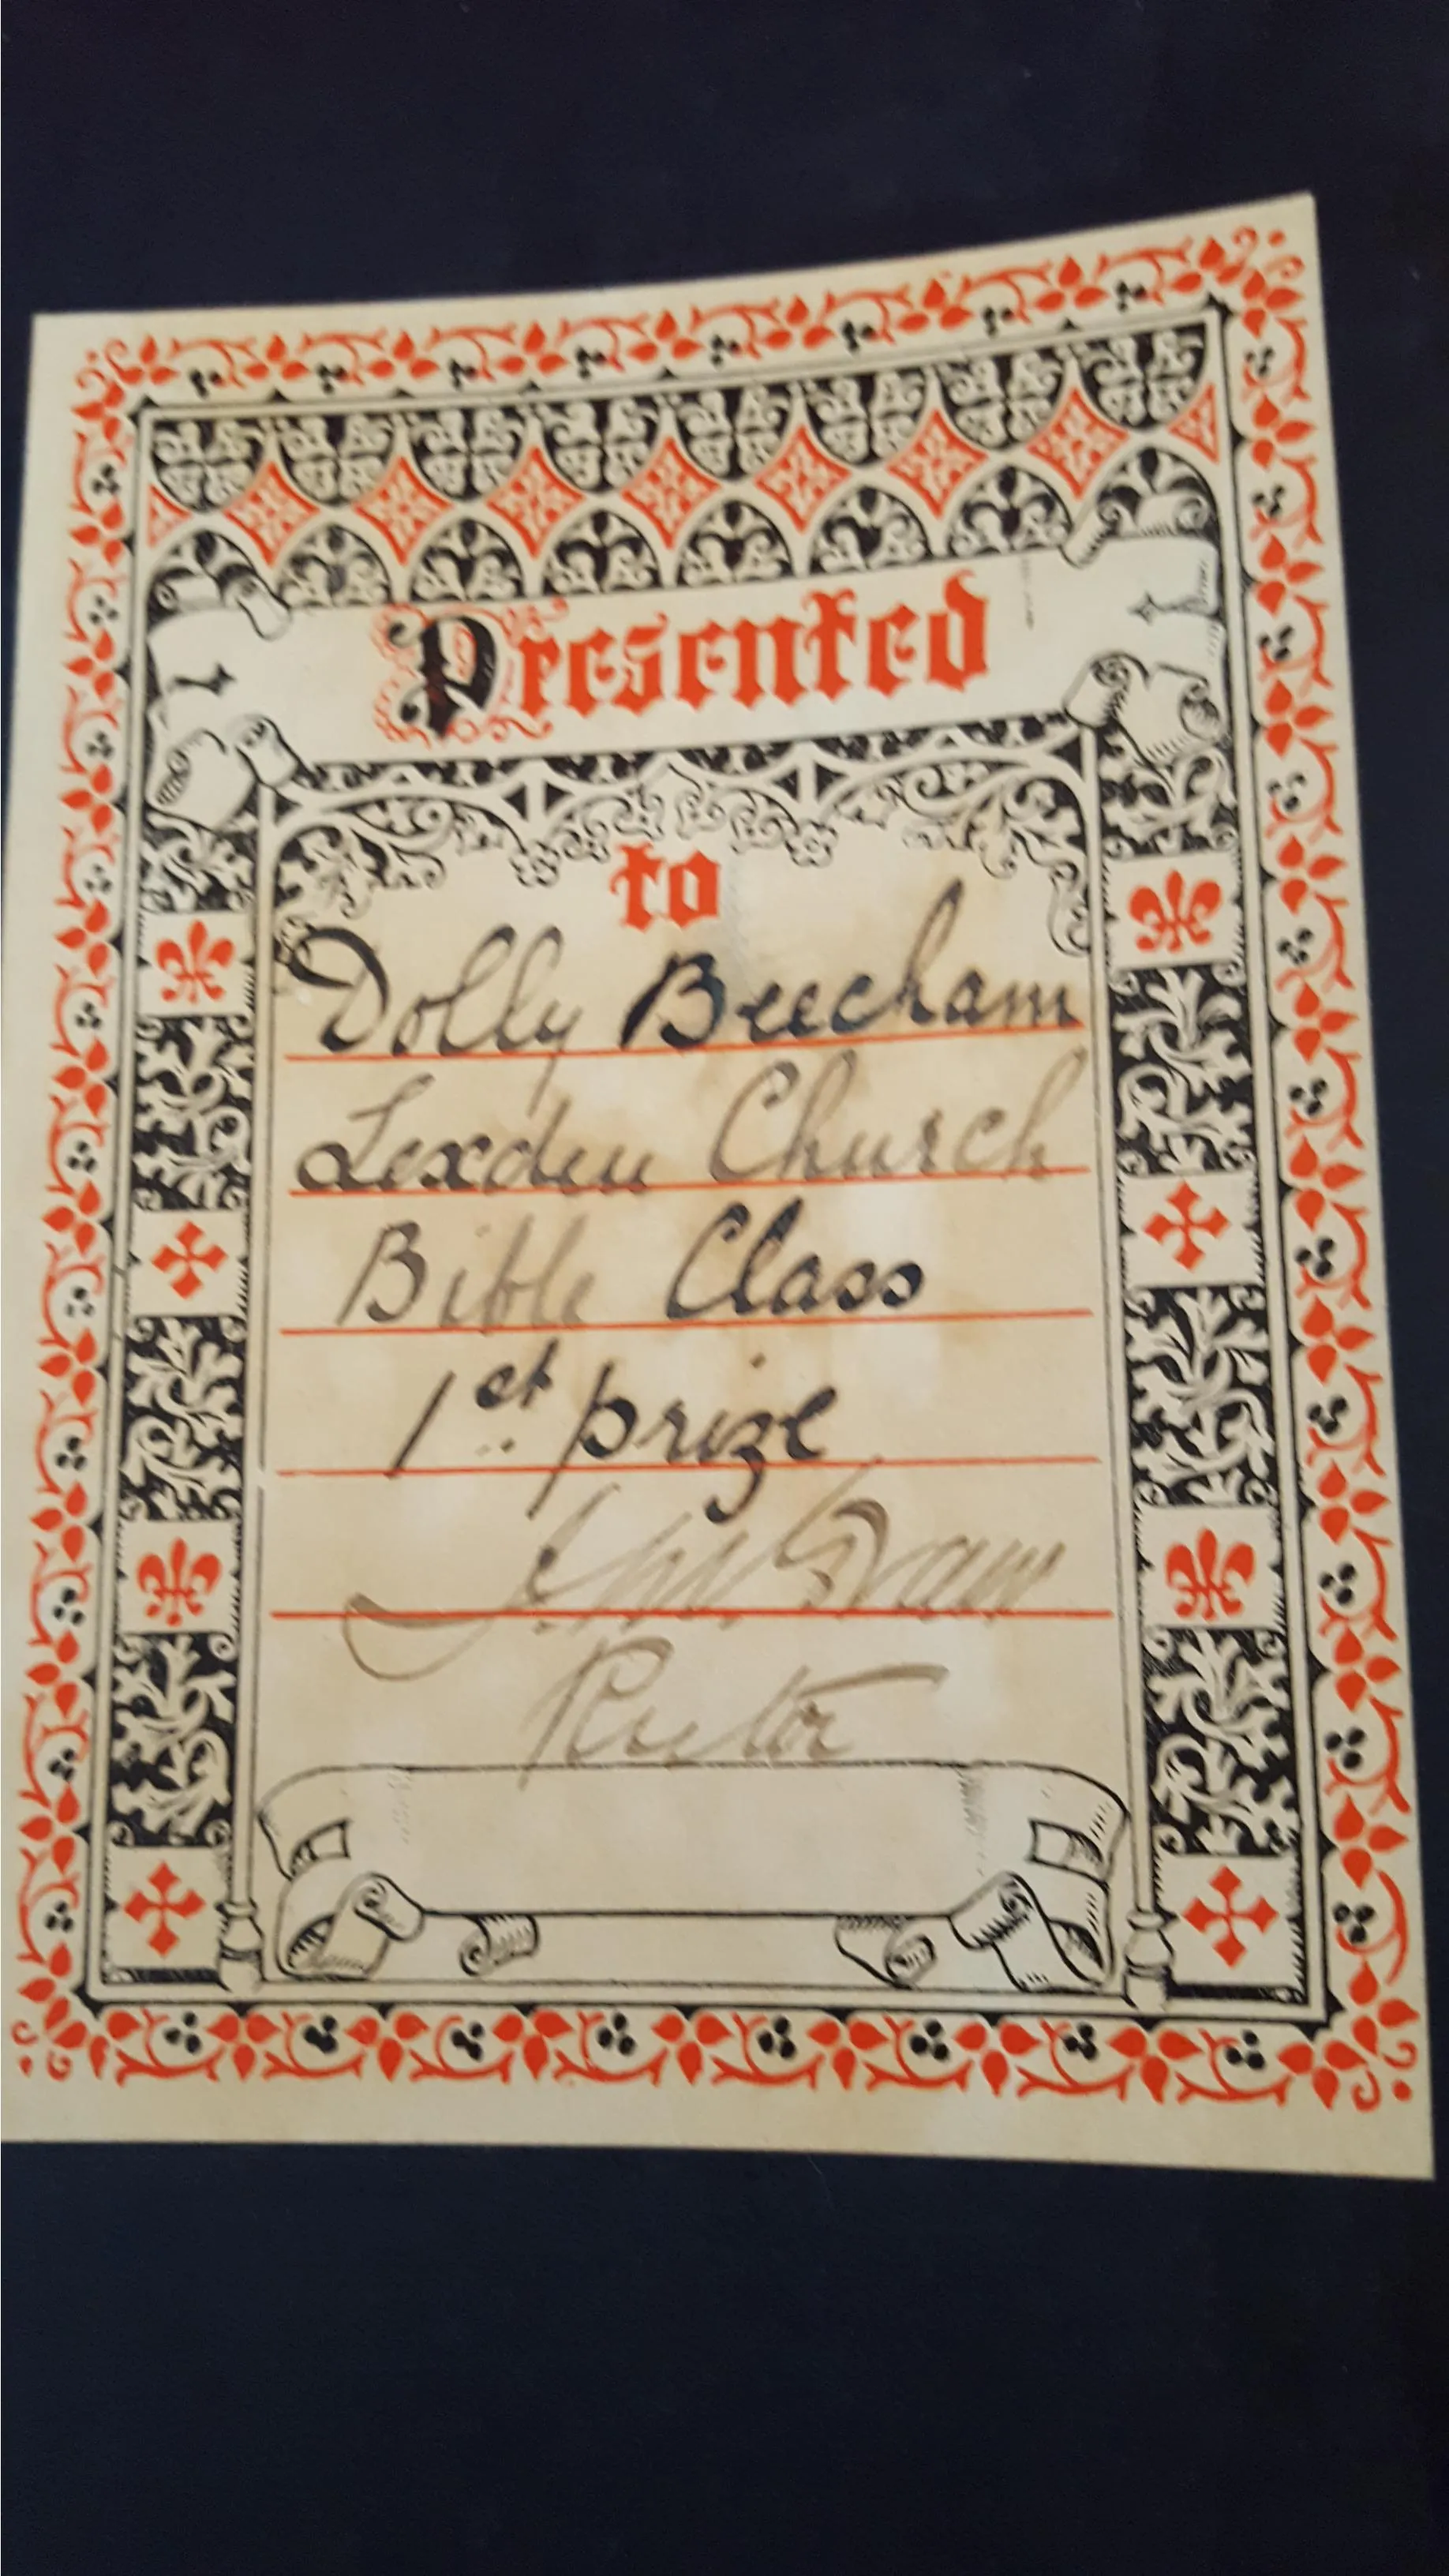 Presented
to
Dolly Beecham
Lexden Church
Bible Class
1st. prize
Rector